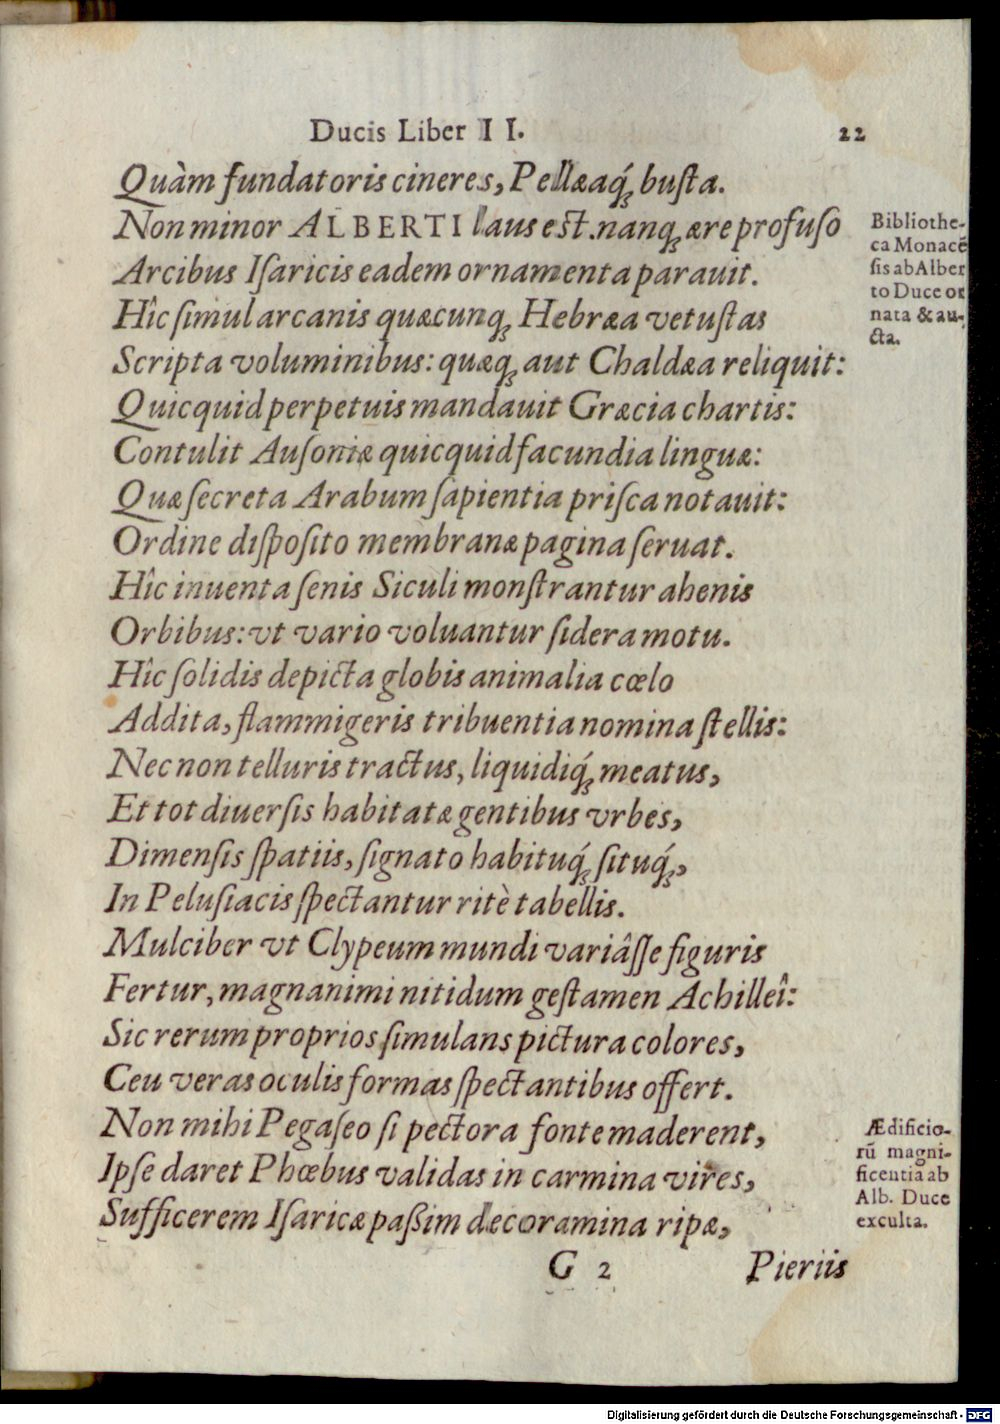 Ducis Liber II. 22
Quàm fundatoris cineres, Pellæaq́; busta.
Non minor ALBERTI laus est. nanq; ære profuso
Arcibus Isaricis eadem ornamenta parauit.
Hîc simul arcanis quæcunq; Hebræa vetustas
Scripta voluminibus: quæq; aut Chaldæa reliquit:
Quicquid perpetuis mandauit Græcia chartis:
Contulit Ausoniæ quicquid facundia linguæ:
Quæ secreta Arabum sapientia prisca notauit:
Ordine disposito membranæ pagina seruat.
Hîc inuenta senis Siculi monstrantur ahenis
Orbibus: vt vario voluantur sidera motu.
Hîc solidis depicta globis animalia cœlo
Addita, flammigeris tribuentia nomina stellis:
Nec non telluris tractus, liquidiq́; meatus,
Et tot diuersis habitatæ gentibus vrbes,
Dimensis spatiis, signato habituq́; situq́;,
In Pelusiacis spectantur ritè tabellis.
Mulciber vt Clypeum mundi variâsse figuris
Fertur, magnanimi nitidum gestamen Achilleî:
Sic rerum proprios simulans pictura colores,
Ceu veras oculis formas spectantibus offert.
Non mihi Pegaseo si pectora fonte maderent,
Ipse daret Phœbus validas in carmina vires,
Sufficerem Isaricæ paßim decoramina ripæ,
G 2 Pieriis
Bibliothe-
ca Monacẽ
sis ab Alber
to Duce or
nata & au-
cta.
Ædificio-
rũ magni-
ficentia ab
Alb. Duce
exculta.
Digitalisierung gefördert durch die Deutsche Forschungsgemeinschaft - DFG